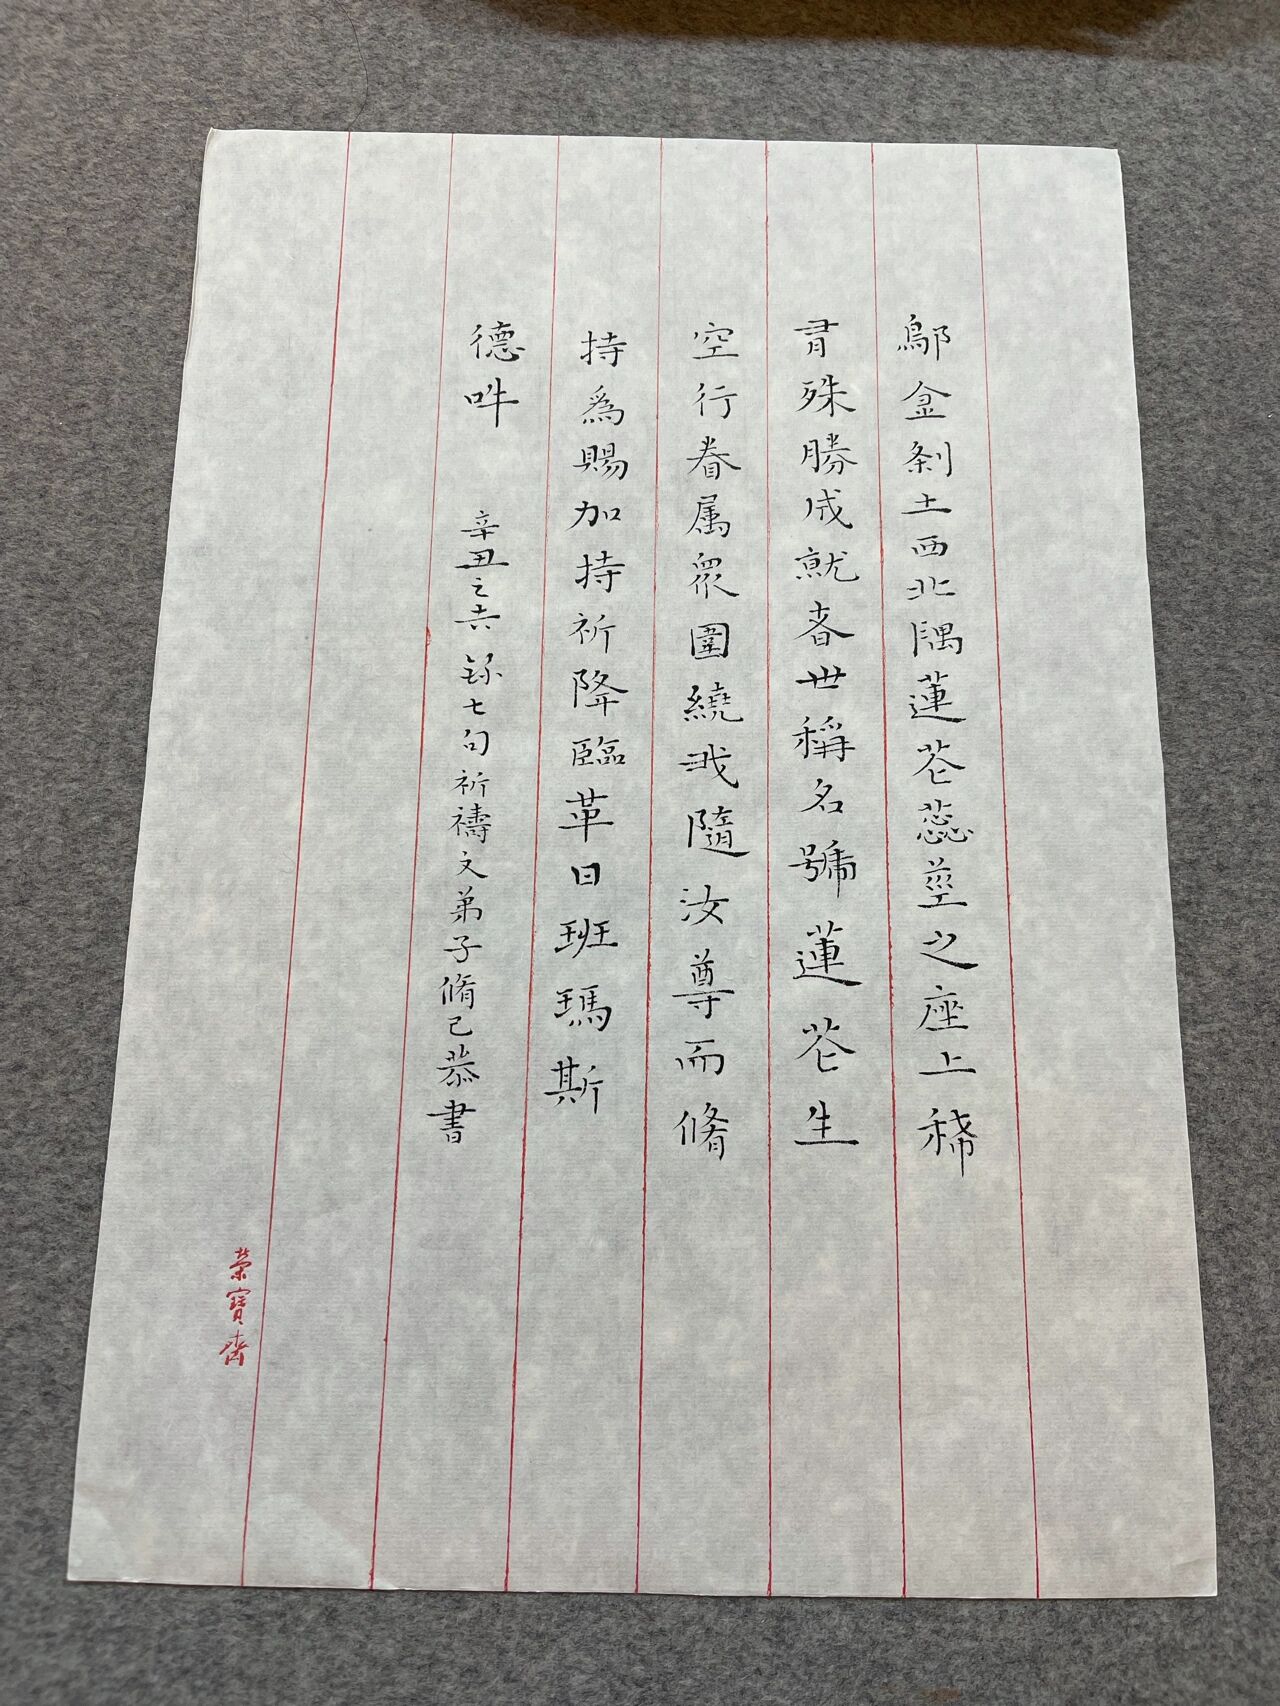 鄔金刹土西北隅蓮花蕊莖之座上稀
有殊勝成就者世稱名號蓮花生
空行眷属眾圍繞我隨汝尊而脩
持爲賜加持祈降臨革日班瑪斯
德吽
辛丑之吉錄七句祈禱文弟子脩己恭書
榮寶齋